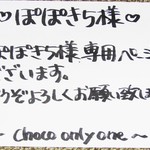 ♡ぽぽきち様♡
ぽぽきち様専用ペー
ございます。
うぞよろしくお願い致し
~ choco only one ~